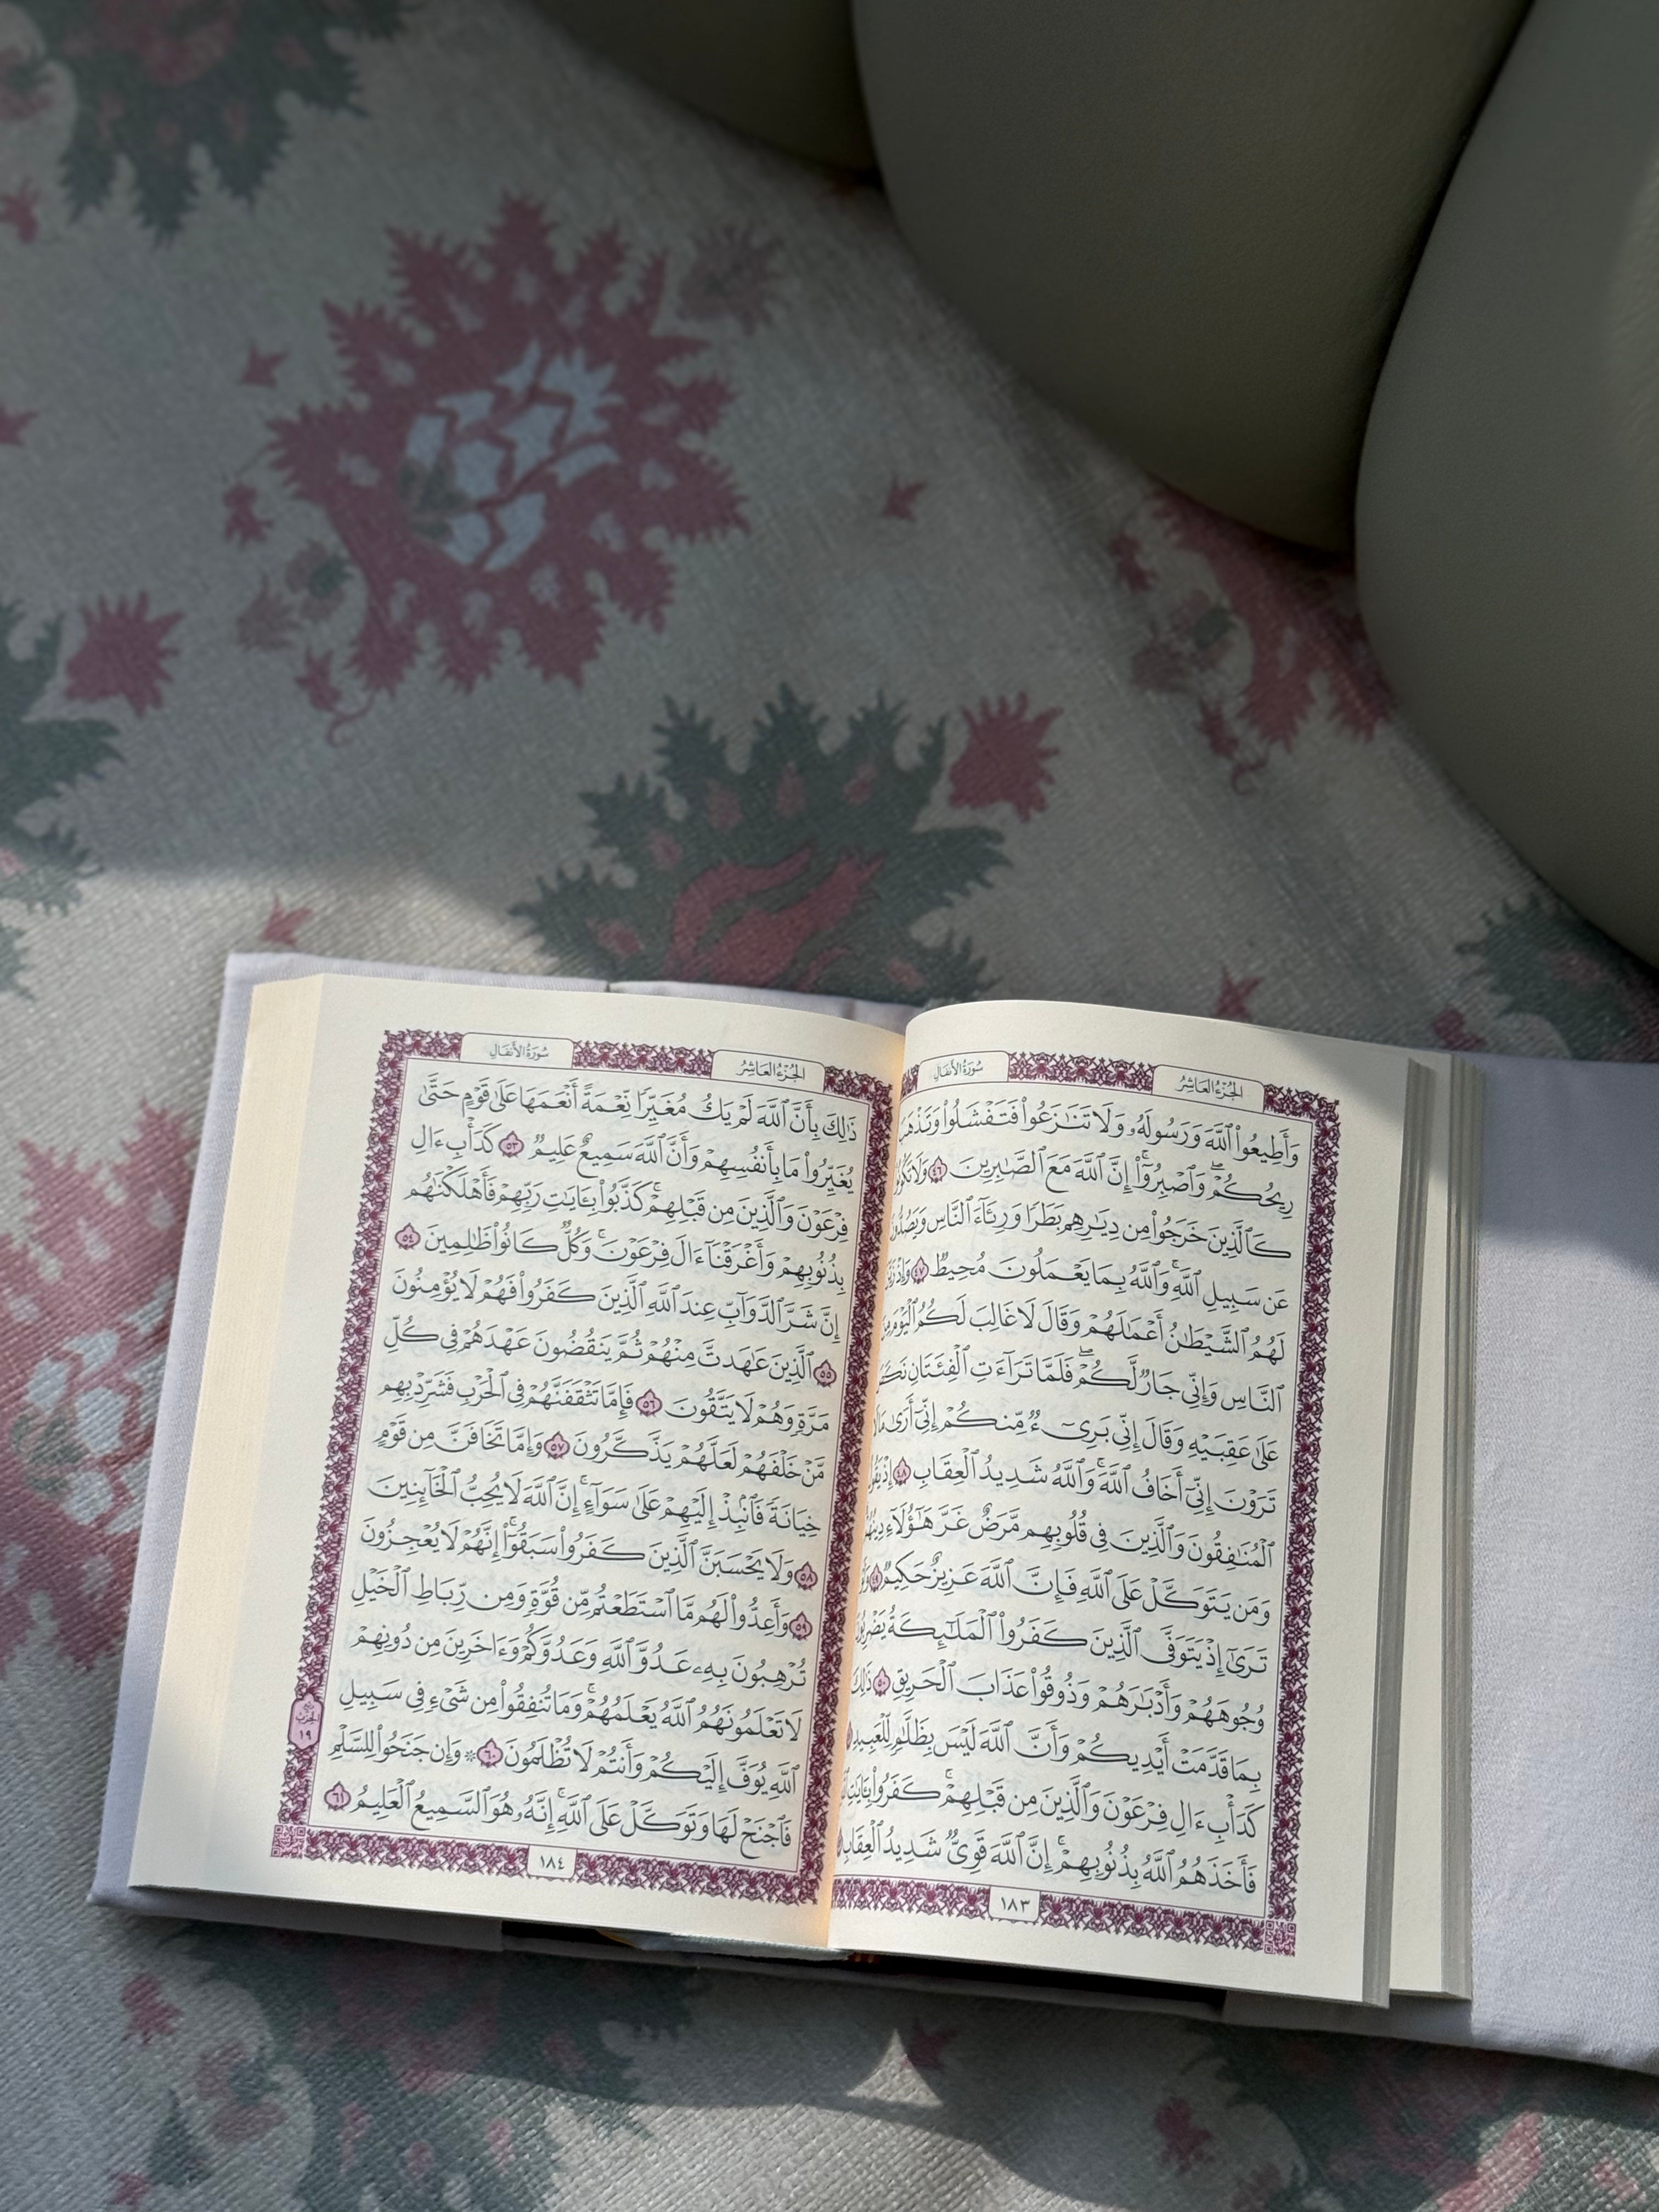 الجُزْءُ العَاشِرُ
سُورَةُ الأَنفَالِ
وَأَطِيعُوا۟ ٱللَّهَ وَرَسُولَهُۥ وَلَا تَنَـٰزَعُوا۟ فَتَفْشَلُوا۟ وَتَذْهَبَ
رِيحُكُمْ ۖ وَٱصْبِرُوٓا۟ ۚ إِنَّ ٱللَّهَ مَعَ ٱلصَّـٰبِرِينَ ٤٦ وَلَا تَكُونُوا۟
كَٱلَّذِينَ خَرَجُوا۟ مِن دِيَـٰرِهِم بَطَرًا وَرِئَآءَ ٱلنَّاسِ وَيَصُدُّونَ
عَن سَبِيلِ ٱللَّهِ ۚ وَٱللَّهُ بِمَا يَعْمَلُونَ مُحِيطٌ ٤٧ وَإِذْ زَيَّنَ
لَهُمُ ٱلشَّيْطَـٰنُ أَعْمَـٰلَهُمْ وَقَالَ لَا غَالِبَ لَكُمُ ٱلْيَوْمَ مِنَ
ٱلنَّاسِ وَإِنِّى جَارٌ لَّكُمْ ۖ فَلَمَّا تَرَآءَتِ ٱلْفِئَتَانِ نَكَصَ
عَلَىٰ عَقِبَيْهِ وَقَالَ إِنِّى بَرِىٓءٌ مِّنكُمْ إِنِّىٓ أَرَىٰ مَا لَا
تَرَوْنَ إِنِّىٓ أَخَافُ ٱللَّهَ ۚ وَٱللَّهُ شَدِيدُ ٱلْعِقَابِ ٤٨ إِذْ يَقُولُ
ٱلْمُنَـٰفِقُونَ وَٱلَّذِينَ فِى قُلُوبِهِم مَّرَضٌ غَرَّ هَـٰٓؤُلَآءِ دِينُهُمْ
وَمَن يَتَوَكَّلْ عَلَى ٱللَّهِ فَإِنَّ ٱللَّهَ عَزِيزٌ حَكِيمٌ ٤٩
تَرَىٰٓ إِذْ يَتَوَفَّى ٱلَّذِينَ كَفَرُوا۟ ٱلْمَلَـٰٓئِكَةُ يَضْرِبُونَ
وُجُوهَهُمْ وَأَدْبَـٰرَهُمْ وَذُوقُوا۟ عَذَابَ ٱلْحَرِيقِ ٥٠ ذَٰلِكَ
بِمَا قَدَّمَتْ أَيْدِيكُمْ وَأَنَّ ٱللَّهَ لَيْسَ بِظَلَّـٰمٍ لِّلْعَبِيدِ
كَدَأْبِ ءَالِ فِرْعَوْنَ وَٱلَّذِينَ مِن قَبْلِهِمْ ۚ كَفَرُوا۟ بِـَٔايَـٰتِ
فَأَخَذَهُمُ ٱللَّهُ بِذُنُوبِهِمْ ۗ إِنَّ ٱللَّهَ قَوِىٌّ شَدِيدُ ٱلْعِقَابِ
١٨٣
الجُزْءُ العَاشِرُ
سُورَةُ الأَنفَالِ
ذَٰلِكَ بِأَنَّ ٱللَّهَ لَمْ يَكُ مُغَيِّرًا نِّعْمَةً أَنْعَمَهَا عَلَىٰ قَوْمٍ حَتَّىٰ
يُغَيِّرُوا۟ مَا بِأَنفُسِهِمْ وَأَنَّ ٱللَّهَ سَمِيعٌ عَلِيمٌ ٥٣ كَدَأْبِ ءَالِ
فِرْعَوْنَ وَٱلَّذِينَ مِن قَبْلِهِمْ ۚ كَذَّبُوا۟ بِـَٔايَـٰتِ رَبِّهِمْ فَأَهْلَكْنَـٰهُم
بِذُنُوبِهِمْ وَأَغْرَقْنَآ ءَالَ فِرْعَوْنَ ۚ وَكُلٌّ كَانُوا۟ ظَـٰلِمِينَ ٥٤
إِنَّ شَرَّ ٱلدَّوَآبِّ عِندَ ٱللَّهِ ٱلَّذِينَ كَفَرُوا۟ فَهُمْ لَا يُؤْمِنُونَ
٥٥ ٱلَّذِينَ عَـٰهَدتَّ مِنْهُمْ ثُمَّ يَنقُضُونَ عَهْدَهُمْ فِى كُلِّ
مَرَّةٍ وَهُمْ لَا يَتَّقُونَ ٥٦ فَإِمَّا تَثْقَفَنَّهُمْ فِى ٱلْحَرْبِ فَشَرِّدْ بِهِم
مَّنْ خَلْفَهُمْ لَعَلَّهُمْ يَذَّكَّرُونَ ٥٧ وَإِمَّا تَخَافَنَّ مِن قَوْمٍ
خِيَانَةً فَٱنۢبِذْ إِلَيْهِمْ عَلَىٰ سَوَآءٍ ۚ إِنَّ ٱللَّهَ لَا يُحِبُّ ٱلْخَآئِنِينَ
٥٨ وَلَا يَحْسَبَنَّ ٱلَّذِينَ كَفَرُوا۟ سَبَقُوٓا۟ ۚ إِنَّهُمْ لَا يُعْجِزُونَ
٥٩ وَأَعِدُّوا۟ لَهُم مَّا ٱسْتَطَعْتُم مِّن قُوَّةٍ وَمِن رِّبَاطِ ٱلْخَيْلِ
تُرْهِبُونَ بِهِۦ عَدُوَّ ٱللَّهِ وَعَدُوَّكُمْ وَءَاخَرِينَ مِن دُونِهِمْ
لَا تَعْلَمُونَهُمُ ٱللَّهُ يَعْلَمُهُمْ ۚ وَمَا تُنفِقُوا۟ مِن شَىْءٍ فِى سَبِيلِ
ٱللَّهِ يُوَفَّ إِلَيْكُمْ وَأَنتُمْ لَا تُظْلَمُونَ ٦٠ ۞ وَإِن جَنَحُوا۟ لِلسَّلْمِ
فَٱجْنَحْ لَهَا وَتَوَكَّلْ عَلَى ٱللَّهِ ۚ إِنَّهُۥ هُوَ ٱلسَّمِيعُ ٱلْعَلِيمُ ٦١
الحِزْب
١٩
١٨٤